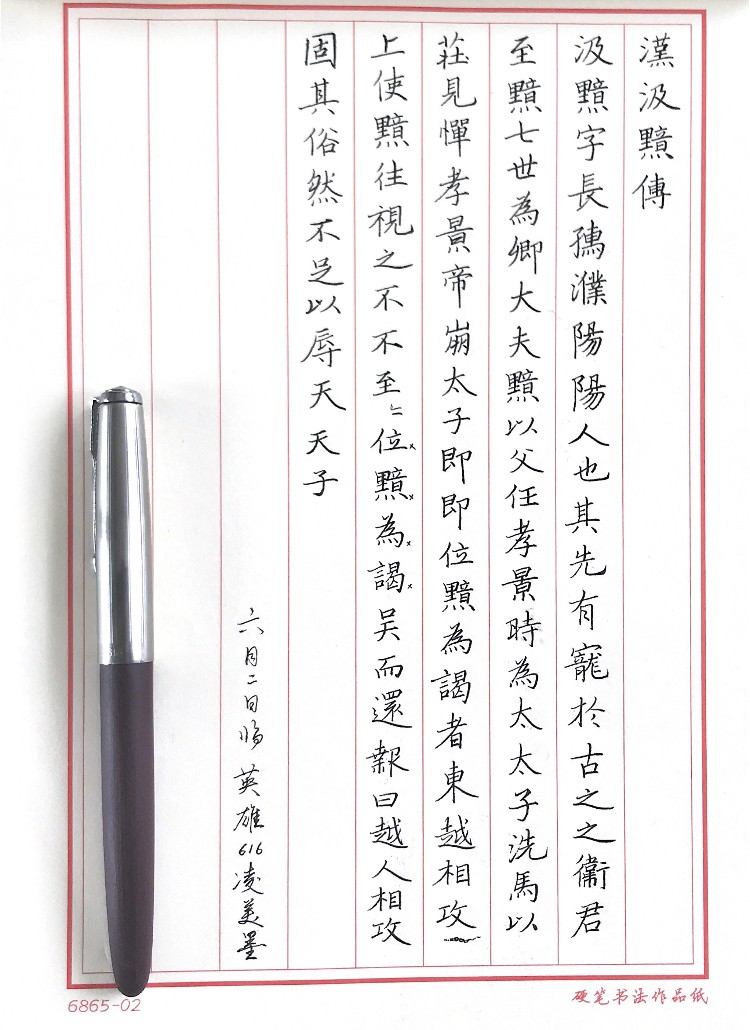 漢汲黯傳
汲黯字長孺濮陽陽人也其先有寵於古之之衞君
至黯七世為卿大夫黯以父任孝景時為太太子洗馬以
莊見憚孝景帝崩太子即即位黯為謁者東越相攻
上使黯往視之不不至〻位黯為謁吴而還報曰越人相攻
固其俗然不足以辱天天子
六月二日臨 英雄616凌美墨
6865-02
硬笔书法作品纸